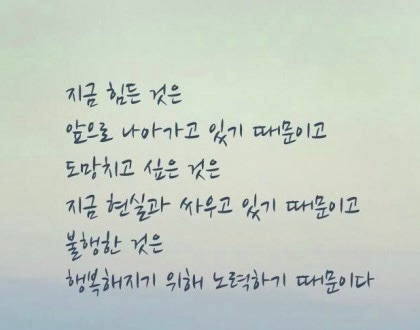 지금 힘든 것은
앞으로 나아가고 있기 때문이고
도망치고 싶은 것은
지금 현실과 싸우고 있기 때문이고
불행한 것은
행복해지기 위해 노력하기 때문이다